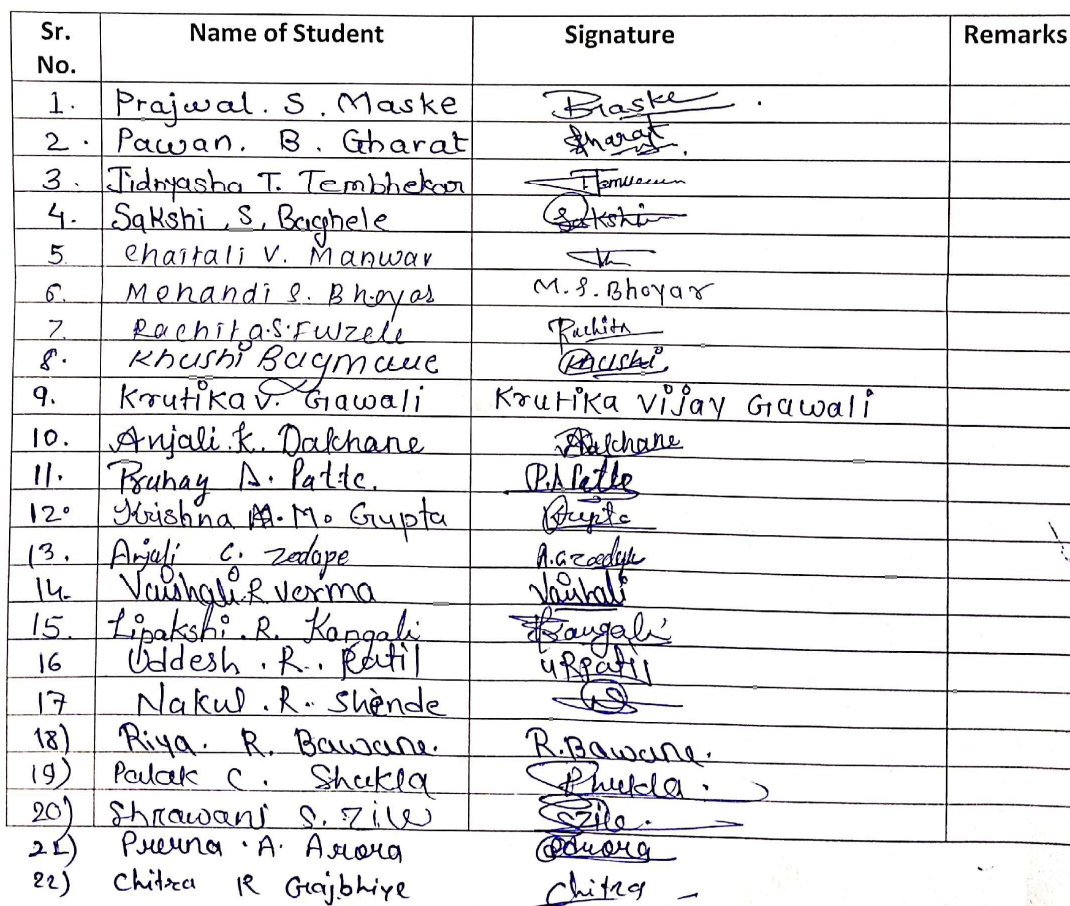 Sr. No. Name of Student Signature Remarks
1. Prajwal. S. Maske
2. Pawan. B. Gharat Gharat
3. Jidnyasha T. Tembhekar
4. Sakshi S. Baghele Sakshi
5. Chaitali V. Manwar
6. Mehandi S. Bhoyar M.S.Bhoyar
7. Rachita.S.Fulzele Rachita
8. Khushi Bagmawe Khushi
9. Krutika V. Gawali Krutika Vijay Gawali
10. Anjali.K. Dakhane Dakhane
11. A. Patte. P.A Patte
12. Krishna M. Gupta Gupta
13. Anjali C. Zedape
14. Vaishali.R Verma Vaishali
15. Lipakshi.R. Kangali Kangali
16 Uddesh.R. Patil U R Patil
17 Nakul.R. Shende
18) Riya. R. Bawane. R.Bawane.
19) Palak C. Shukla
20) Shrawani S. Zile SZile.
21) Prerna.A. Arora
22) Chitra R Gajbhiye Chitra